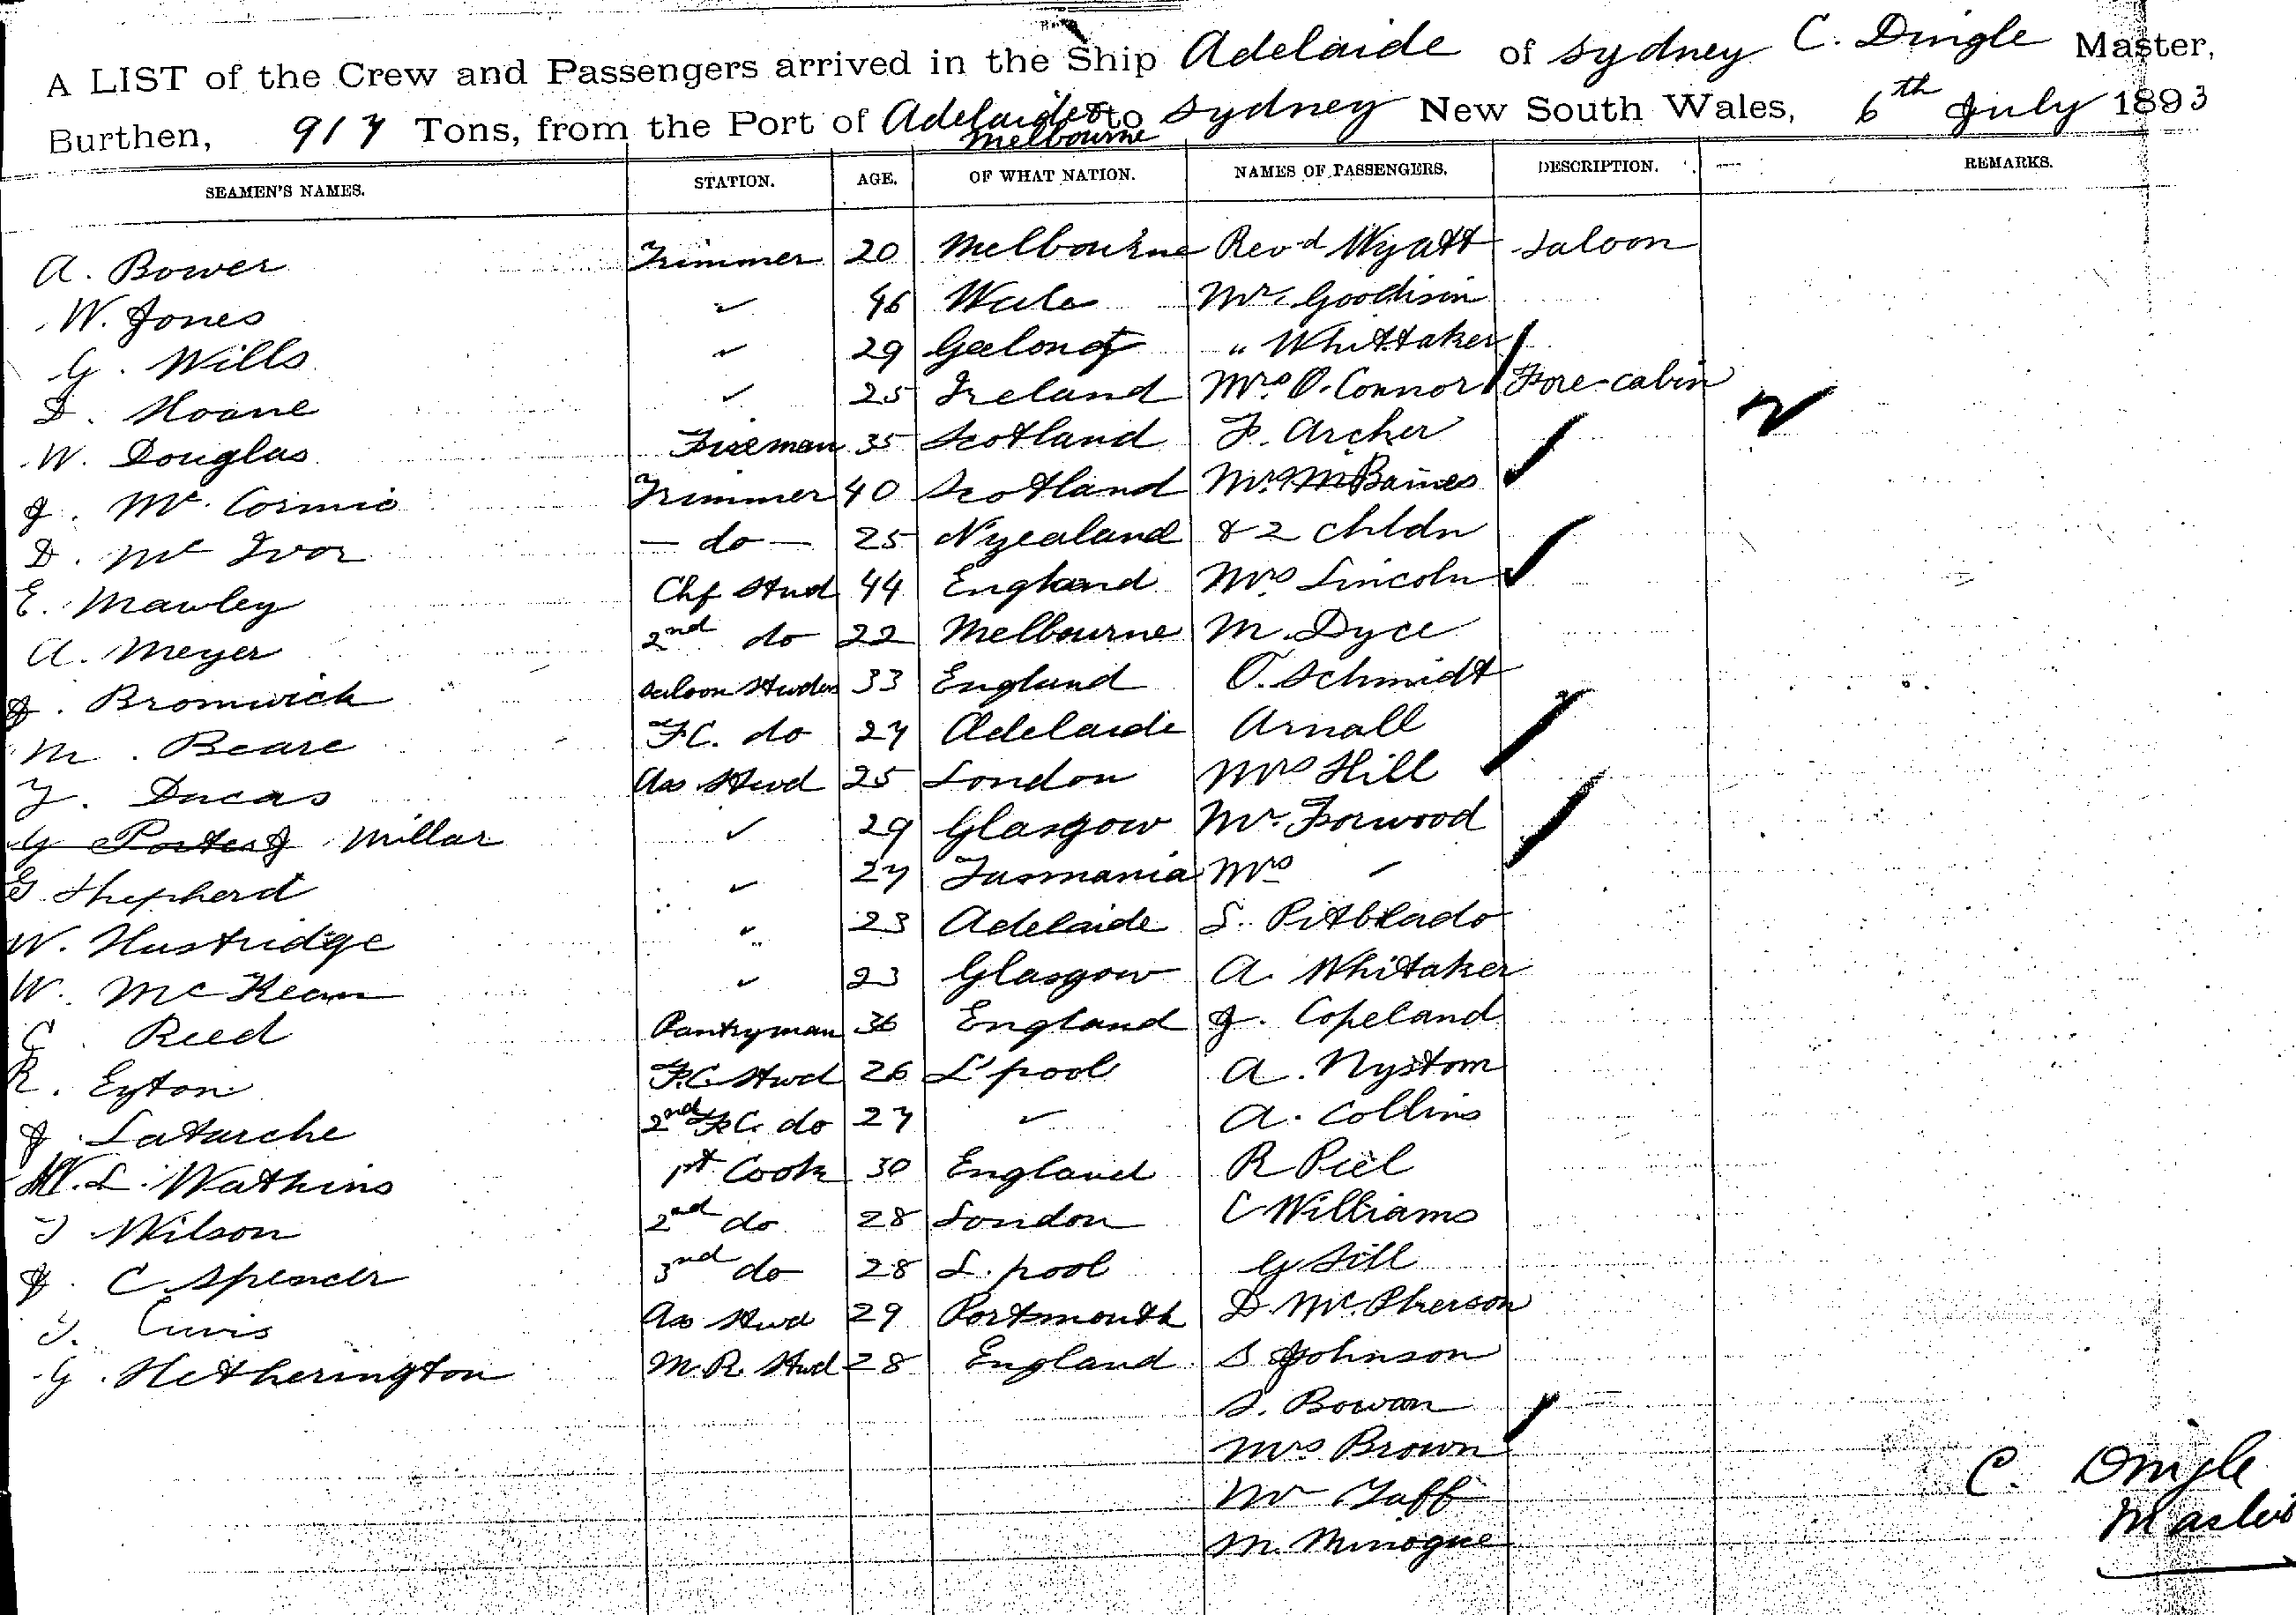 A LIST of the Crew and Passengers arrived in the Ship Adelaide of Sydney C. Dingle Master,
Burthen, 917 Tons, from the Port of Adelaide & Melbourne to Sydney New South Wales, 6th July 1893
SEAMEN'S NAMES. STATION. AGE. OF WHAT NATION. NAMES OF PASSENGERS. DESCRIPTION. REMARKS.
A. Bower Trimmer 20 Melbourne Revd Wyatt Saloon
W. Jones ✓ 46 Wales Mr. Goodisin
G. Wills ✓ 29 Geelong " Whittaker
D. Hoane ✓ 25 Ireland Mrs O. Connor Fore-cabin
W. Douglas Fireman 35 Scotland F. Archer
J. Mc. Cormic Trimmer 40 Scotland Mrs Baines
D. Mc Ivor - do - 25 N Zealand & 2 chldn
E. Mawley Chf Stwd 44 England Mrs Lincoln
A. Meyer 2nd do 22 Melbourne M. Dyce
J. Bromwich Saloon Stwdes 33 England O. Schmidt
M. Beare F.C. do 27 Adelaide Arnall
Y. Ducas Ass Stwd 25 London Mrs Hill
G Porter J. Millar ✓ 29 Glasgow Mr. Forwood
G Shepherd ✓ 27 Tasmania Mrs ✓
W. Hustridge ✓ 23 Adelaide S. Pitblado
W. McKean ✓ 23 Glasgow A. Whitaker
C. Reed Pantryman 36 England J. Copeland
R. Eyton F.C. Stwd 26 L'pool A. Nystom
J. Latarche 2nd F.C. do 27 ✓ A. Collins
W. L. Watkins 1st Cook 30 England R Piel
T Wilson 2nd do 28 London C Williams
J. C Spencer 3nd do 28 L. pool G Sill
T. Ass Stwd 29 Portsmouth D. Mc. Pherson
G. Hetherington M.R. Stwd 28 England S Johnson
S. Bowan
Mrs Brown
Mr Taff
M. Minogue
C. Dingle
Master